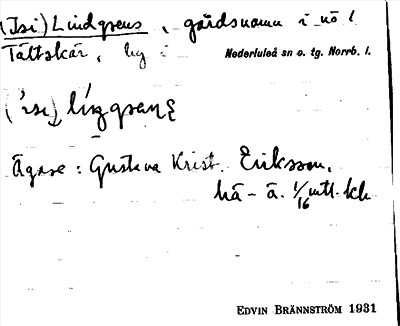 (Isi) Lindgrens, gårdsnamn i nö
Tåttskär, by i Nederluleå sn o. tg. Norrb. l.
Ägare: Gustava Krist. Eriksson,
hä- ä. 1/16 mtl.
EDVIN BRÄNNSTRÖM 1931